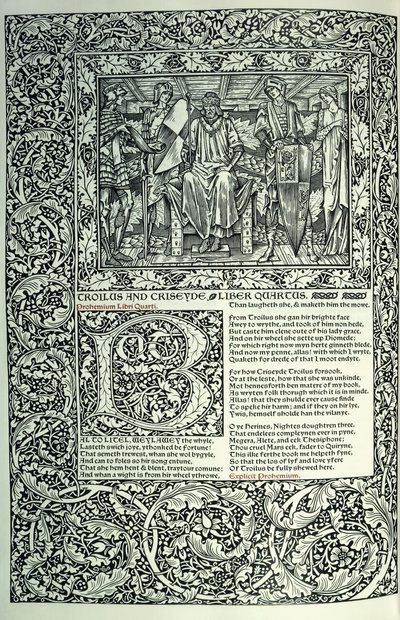 TROILUS AND CRISEYDE. LIBER QUARTUS.
Prohemium Libri Quarti.
B
UT AL TO LITEL, WEYLAWEY the whyle,
Lasteth swich joye, ythonked be Fortune!
That semeth trewest, whan she wol bygyle,
And can to foles so hir song entune,
That she hem hent & blent, traytour comune;
And whan a wight is from hir wheel ythrowe,
Than laugheth she, & maketh him the mowe.
From Troilus she gan hir brighte face
Awey to wrythe, and took of him non hede,
But caste him clene oute of his lady grace,
And on hir wheel she sette up Diomede;
For which right now myn herte ginneth blede,
And now my penne, allas! with which I wryte,
Quaketh for drede of that I moot endyte.
For how Criseyde Troilus forsook,
Or at the leste, how that she was unkinde,
Mot hennesforth ben matere of my book,
As wryten folk thorugh which it is in minde.
Allas! that they shulde ever cause finde
To speke hir harm; and if they on hir lye,
Ywis, hemself sholde han the vilanye.
O ye Herines, Nightes doughtren three,
That endelees compleynen ever in pyne,
Megera, Alete, and eek Thesiphone;
Thou cruel Mars eek, fader to Quiryne,
This ilke ferthe book me helpeth fyne,
So that the los of lyf and love yfere
Of Troilus be fully shewed here.
Explicit Prohemium.